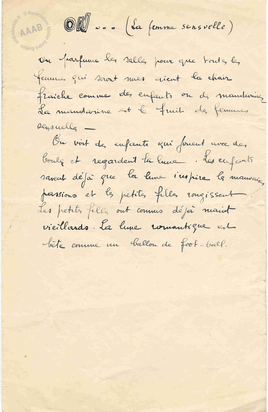 AAAB
ON ... (La femme sensuelle)
On parfume les salles pour que toutes les
femmes qui seront nues aient la chair
fraîche comme des enfants ou des mandarines.
La mandarine est le fruit des femmes
sensuelles —
On voit des enfants qui jouent avec des
boules et regardent la lune. Les enfants
savent déjà que la lune inspire les mauvaises
passions et les petites filles rougissent
Les petites filles ont connus déjà maint
vieillards. La lune romantique est
bête comme un ballon de foot-ball.